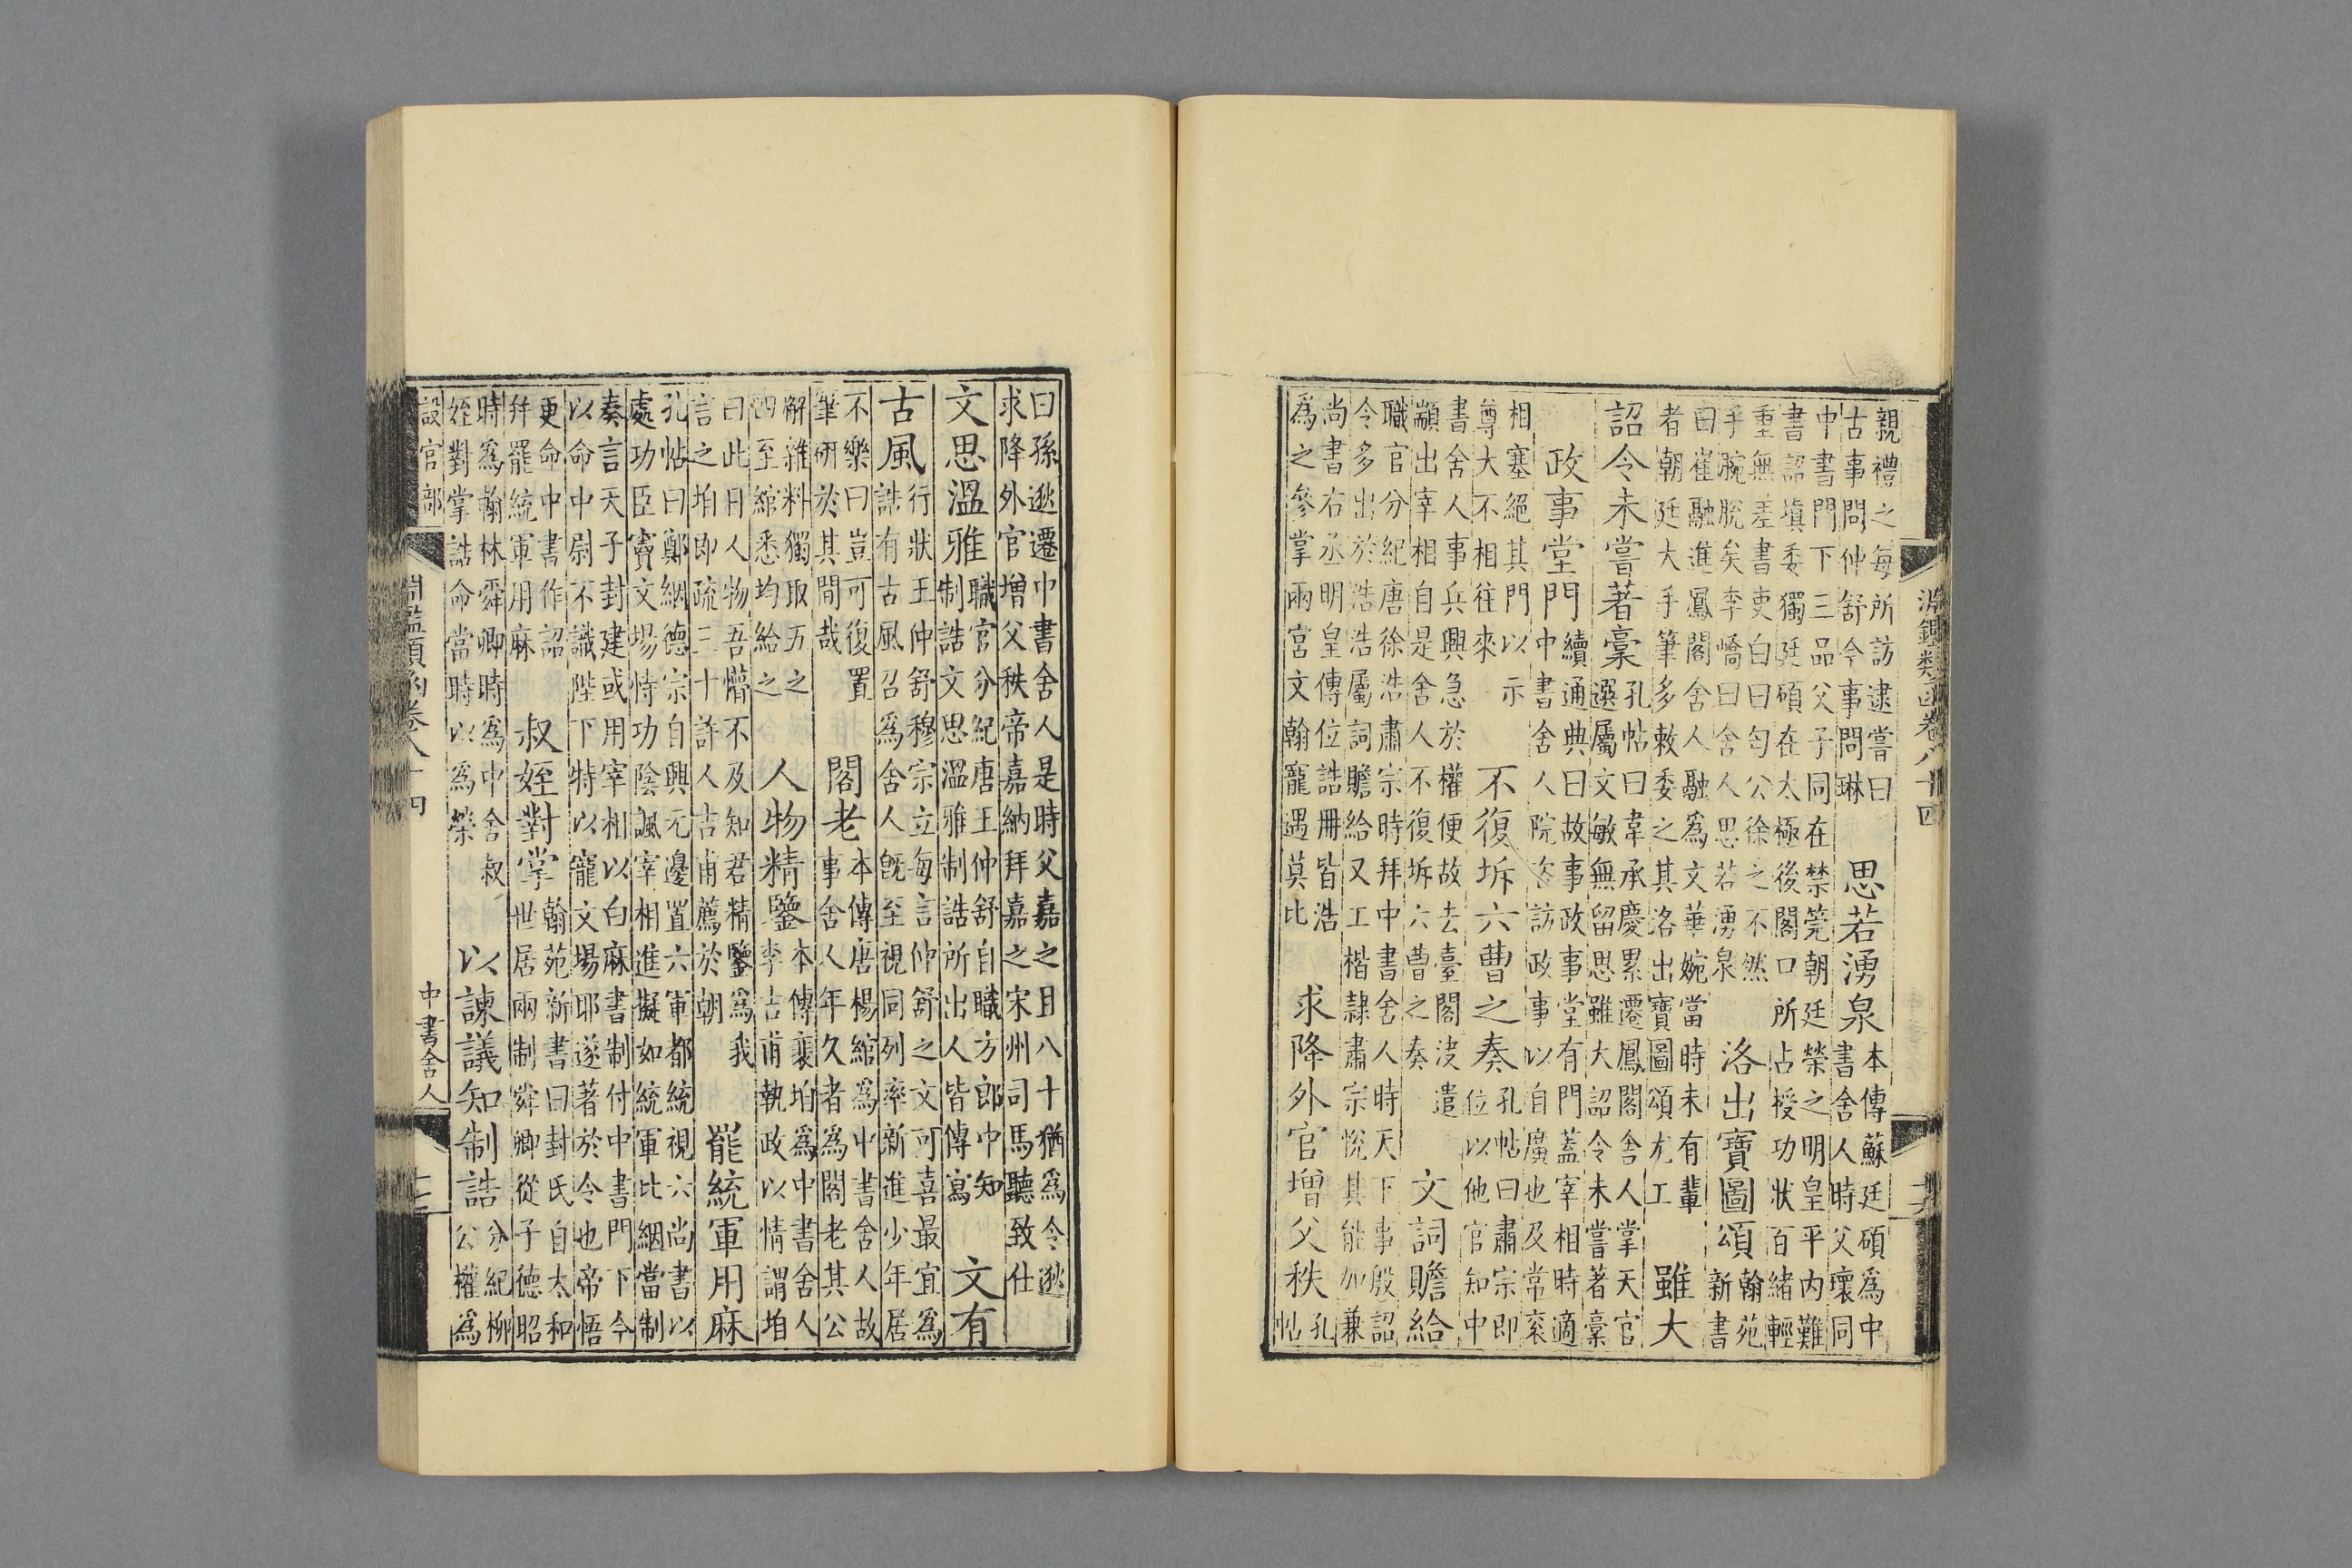 淵鑑類函卷八十四
十六
親禮之每所訪逮嘗曰古事問仲舒今事問琳 思若湧泉 本傳蘇廷碩爲中書舍人時父瓌同
中書門下三品父子同在禁筦朝廷榮之明皇平内難書詔填委獨廷碩在太極後閣口所占授功狀百緒輕
重無差書吏白曰匄公徐之不然手腕脫矣李嶠曰舍人思若湧泉 洛出寶圖頌 翰苑新書
曰崔融進鳳閣舍人融爲文華婉當時未有輩者朝廷大手筆多敕委之其洛出寶圖頌尤工 雖大
詔令未嘗著稾 孔帖曰韋承慶累遷鳳閣舍人掌天官選屬文敏無留思雖大詔令未嘗著稾
政事堂門 續通典曰故事政事堂有門蓋宰相時適中書舍人院咨訪政事以自廣也及常衮
相塞絕其門以示尊大不相往來 不復坼六曹之奏 孔帖曰肅宗即位以他官知中
書舍人事兵興急於權便故去臺閣決遣顓出宰相自是舍人不復坼六曹之奏 文詞贍給
職官分紀唐徐浩肅宗時拜中書舍人時天下事殷詔令多出於浩浩屬詞贍給又工楷隷肅宗悅其能加兼
尚書右丞明皇傳位誥冊皆浩爲之參掌兩宮文翰寵遇莫比 求降外官增父秩 孔帖
曰孫逖遷中書舍人是時父嘉之且八十猶爲令逖求降外官增父秩帝嘉納拜嘉之宋州司馬聽致仕
文思溫雅 職官分紀唐王仲舒自職方郎中知制誥文思溫雅制誥所出人皆傳寫 文有
古風 行狀王仲舒穆宗立每言仲舒之文可喜最宜爲誥有古風召爲舍人旣至視同列率新進少年居
不樂曰豈可復置筆研於其間哉 閣老 本傳唐楊綰爲中書舍人故事舍人年久者爲閣老其公
解雜料獨取五之四至綰悉均給之 人物精鑒 本傳裴垍爲中書舍人李吉甫執政以情謂垍
曰此日人物吾懵不及知君精鑒爲我言之垍即疏三十許人吉甫薦於朝 罷統軍用麻
孔帖曰鄭絪德宗自興元邊置六軍都統視六尚書以處功臣竇文場恃功陰諷宰相進擬如統軍比絪當制
奏言天子封建或用宰相以白麻書制付中書門下今以命中尉不識陛下特以寵文場耶遂著於令也帝悟
更命中書作詔幷罷統軍用麻 叔姪對掌 翰苑新書曰封氏自太和世居兩制舜卿從子德昭
時爲翰林舜卿時爲中舍叔姪對掌誥命當時以爲榮 以諫議知制誥 分紀柳公權爲
設官部
淵鑑類函卷八十四
中書舍人
十七